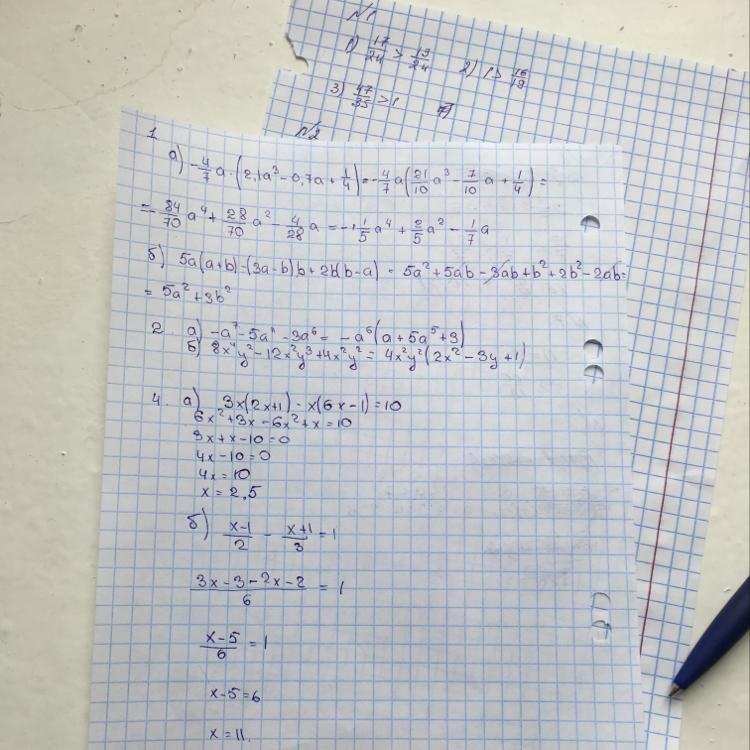 N1
1) 17/24 > 13/24 2) 1 > 16/19
3) 47/35 > 1
N2
1
а) -4/7 a · (2,1a³ - 0,7a + 1/4) = -4/7 a (21/10 a³ - 7/10 a + 1/4) =
= -84/70 a⁴ + 28/70 a² - 4/28 a = -1 1/5 a⁴ + 2/5 a² - 1/7 a
б) 5a(a+b) - (3a-b)b + 2b(b-a) = 5a² + 5ab - 3ab + b² + 2b² - 2ab =
= 5a² + 3b²
2. а) -a⁷ - 5a¹¹ - 3a⁶ = -a⁶(a + 5a⁵ + 3)
б) 8x⁴y² - 12x²y³ + 4x²y² = 4x²y²(2x² - 3y + 1)
4. а) 3x(2x+1) - x(6x-1) = 10
6x² + 3x - 6x² + x = 10
3x + x - 10 = 0
4x - 10 = 0
4x = 10
x = 2,5
б) (x-1)/2 - (x+1)/3 = 1
(3x-3-2x-2)/6 = 1
(x-5)/6 = 1
x-5 = 6
x = 11.